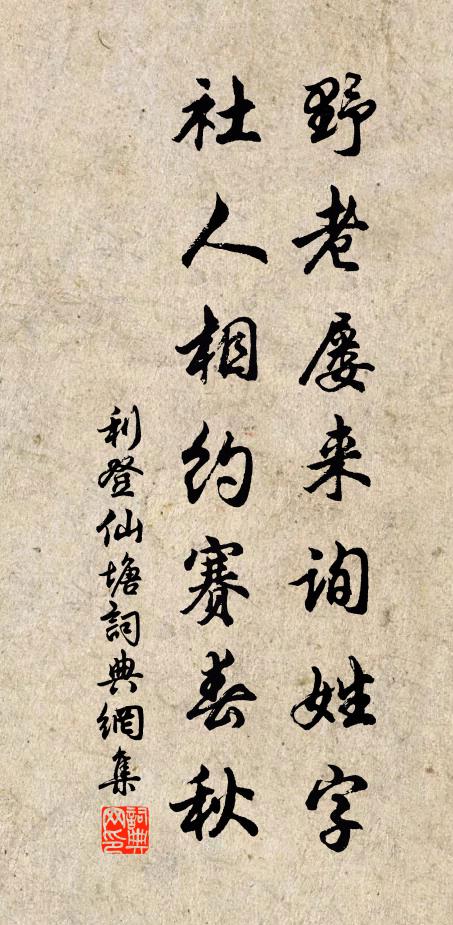 野老屡来询姓字
社人相约赛春秋
利登仙塘詞典網集
詞典網印